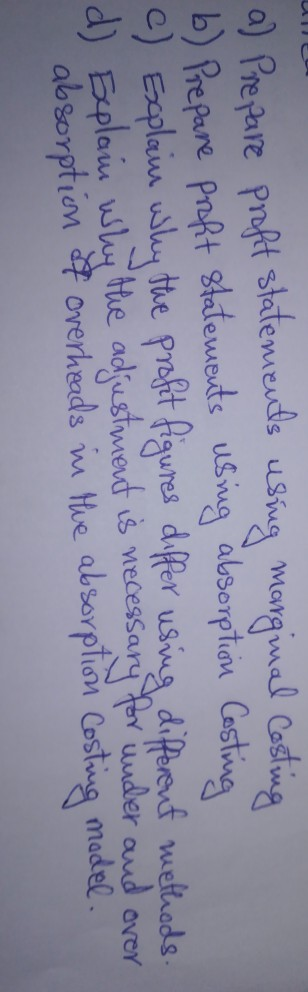 a) Prepare profit statements using marginal Costing
b) Prepare profit statements using absorption Costing
c) Explain why the profit figures differ using different methods.
d) Explain why the adjustment is necessary for under and over
absorption of overheads in the absorption Costing model.